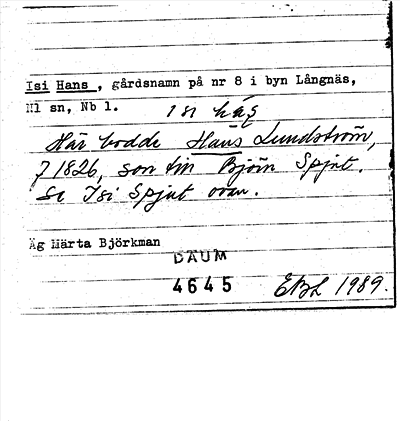 Isi Hans , gårdsnamn på nr 8 i byn Långnäs,
Nl sn, Nb l.
Här bodde Hans Lundström,
f 1826, son till Björn Spjut.
Se Isi Spjut ovan.
Äg Märta Björkman
DAUM
4645
EBL 1989.